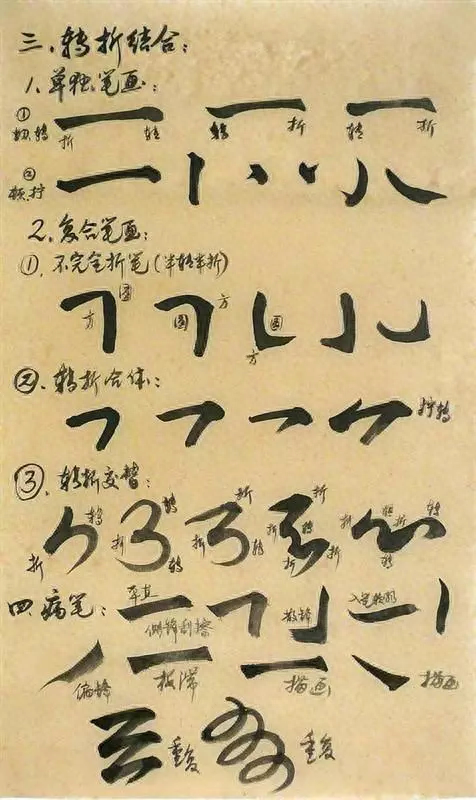 三、转折结合:
1.单独笔画:
① 折 转 转 折 转 折
②顿、拧
2.复合笔画:
①.不完全折笔(半转半折)
方 圆 圆 方 圆 方
②.转折合体:
拧转
③.转折交替:
折 转 折 转 转 折 折 转 折 折 转 折 折 转 折 转 转
四、病笔: 侧锋刮擦 散锋
偏锋 板滞 描画 描画
重复 重复